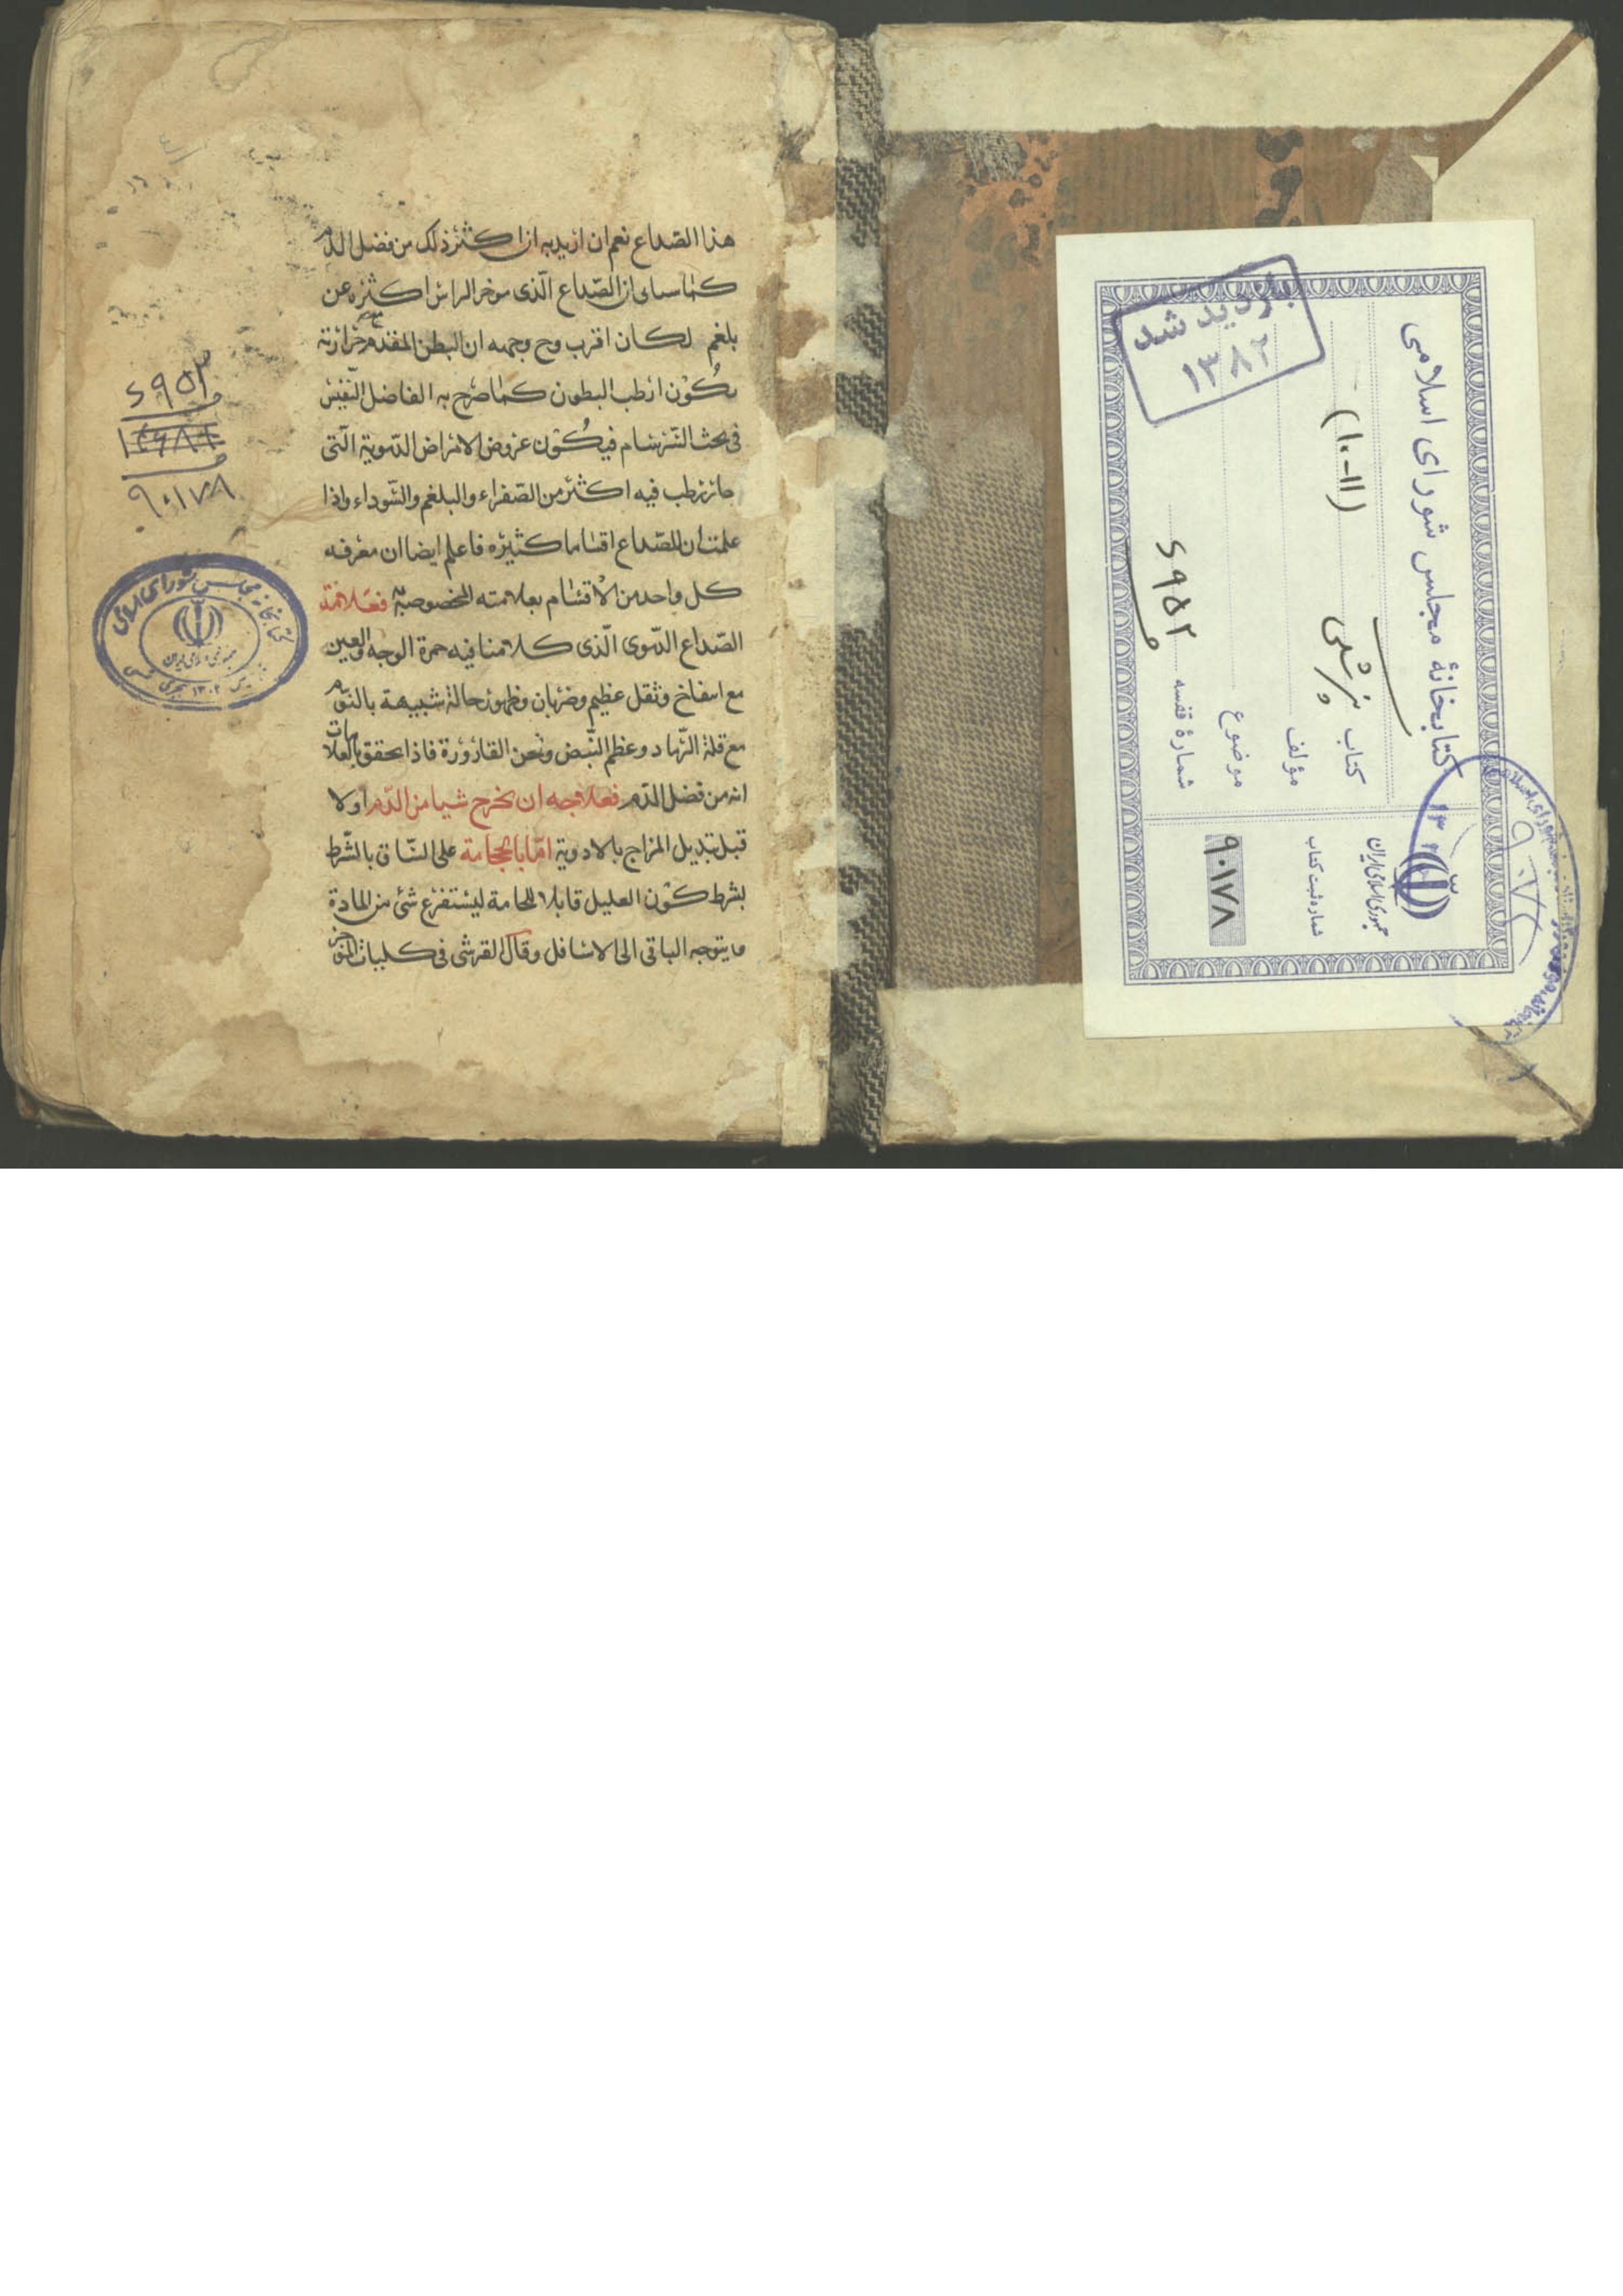 هذا الصّداع نعم ان اريد به ان اكثر ذلك من فضل الدم
كما سياتى ان الصّداع الّذى موخر الراس اكثره عن
بلغم لكان اقرب وح وجهه ان البطن المقدم مع حرارته
يكُون ارطب البطون كما صرح به الفاضل النّفيس
فى بحث السّرسام فيكُون عروض الامراض الدّموية الّتى
حار رطب فيه اكثر من الصّفراء والبلغم والسّوداء واذا
علمت ان للصّداع اقساما كثيره فاعلم ايضا ان معرفه
كل واحد من الاقسام بعلامته المخصوصة به فعلامة
الصّداع الدّموى الّذى كلامنا فيه حمرة الوجه والعين
مع انتفاخ وثقل عظيم وضربان وظهور حالة شبيهة بالنّوم
مع قلة السّهاد وعظم النّبض وثخن القارورة فاذا تحقق بالعلامات
انه من فضل الدّم فعلاجه ان يخرج شيا من الدّم اولا
قبل تبديل المزاج بالادوية امّا بالحجامة على السّاق بالشّرط
بشرط كون العليل قابلا للحجامة ليستفرغ شئ من المادة
ما يتوجه الباقى الى الاسافل وقال القرشى فى كليات الموجز
۶۹۵۲
۹۰۱۷۸
كتابخانه مجلس شوراى اسلامى
كتابخانهٔ مجلس شوراى اسلامى
كتاب
(۱۰-۱۱)
مؤلف
موضوع
شمارهٔ قفسه ۶۹۵۲
جمهورى اسلامى ايران
شماره ثبت كتاب
۹۰۱۷۸
بازديد شد
۱۳۸۲